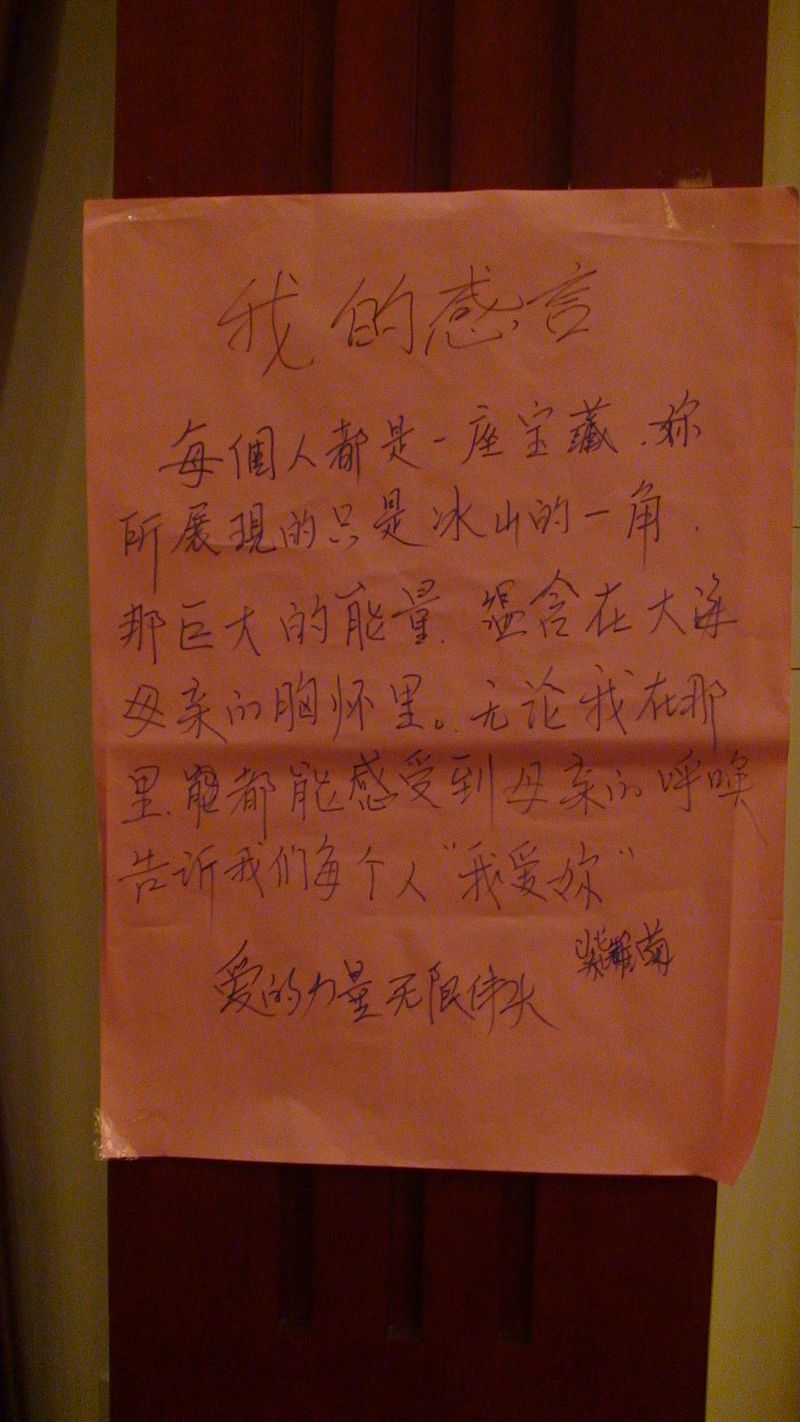 我的感言
每個人都是一座宝藏.妳
所展現的只是冰山的一角.
那巨大的能量.蕴含在大海
母亲的胸怀里。无论我在那
里.都能感受到母亲的呼唤
告诉我们每个人"我爱妳"
爱的力量无限伟大